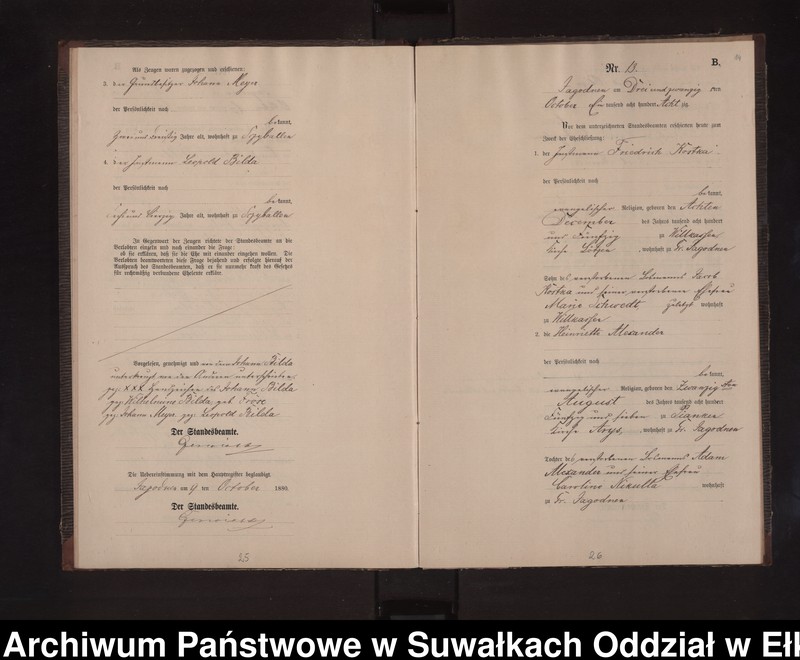 Als Zeugen waren zugezogen und erschienen:
3. der Grundbesitzer Johann Meyer
der Persönlichkeit nach
bekannt,
Zwei und dreißig Jahre alt, wohnhaft zu Szyballen
4. der Leopold Bilda
der Persönlichkeit nach
bekannt,
sechs und vierzig Jahre alt, wohnhaft zu Szyballen
In Gegenwart der Zeugen richtete der Standesbeamte an die
Verlobten einzeln und nach einander die Frage:
ob sie erklären, daß sie die Ehe mit einander eingehen wollen. Die
Verlobten beantworteten diese Frage bejahend und erfolgte hierauf der
Ausspruch des Standesbeamten, daß er sie nunmehr kraft des Gesetzes
für rechtmäßig verbundene Eheleute erkläre.
Vorgelesen, genehmigt und von dem Johann Bilda
unterkreuzt von den Anderen unterschrieben
gez. XXX Handzeichen des Johann Bilda
gez. Wilhelmine Bilda geb.
gez. Johann Meyer gez. Leopold Bilda
Der Standesbeamte.
Die Uebereinstimmung mit dem Hauptregister beglaubigt
Jagodnen am 4 ten October 1880.
Der Standesbeamte.
25
B.
Nr. 13.
Jagodnen am Drei und zwanzig ten
October Ein tausend acht hundert Acht zig
Vor dem unterzeichneten Standesbeamten erschienen heute zum
Zweck der Eheschließung:
1. der Friedrich Kostka
der Persönlichkeit nach
bekannt,
evangelischer Religion, geboren den Achten
December des Jahres tausend acht hundert
und Fünfzig zu Willkassen
Kirche Lötzen, wohnhaft zu Gr. Jagodnen
Sohn des verstorbenen Losmanns Jacob
Kostka und seiner verstorbenen Ehefrau
Marie Schwedt, zuletzt wohnhaft
zu Willkassen
2. die Henriette Alexander
der Persönlichkeit nach
bekannt,
evangelischer Religion, geboren den Zwanzigsten
August des Jahres tausend acht hundert
Fünfzig und sieben zu Pianken
Kirche Arys, wohnhaft zu Gr. Jagodnen
Tochter des verstorbenen Losmanns Adam
Alexander und seiner Ehefrau
Caroline Nikulla wohnhaft
zu Gr. Jagodnen
26
Archiwum Państwowe w Suwałkach Oddział w Ełk